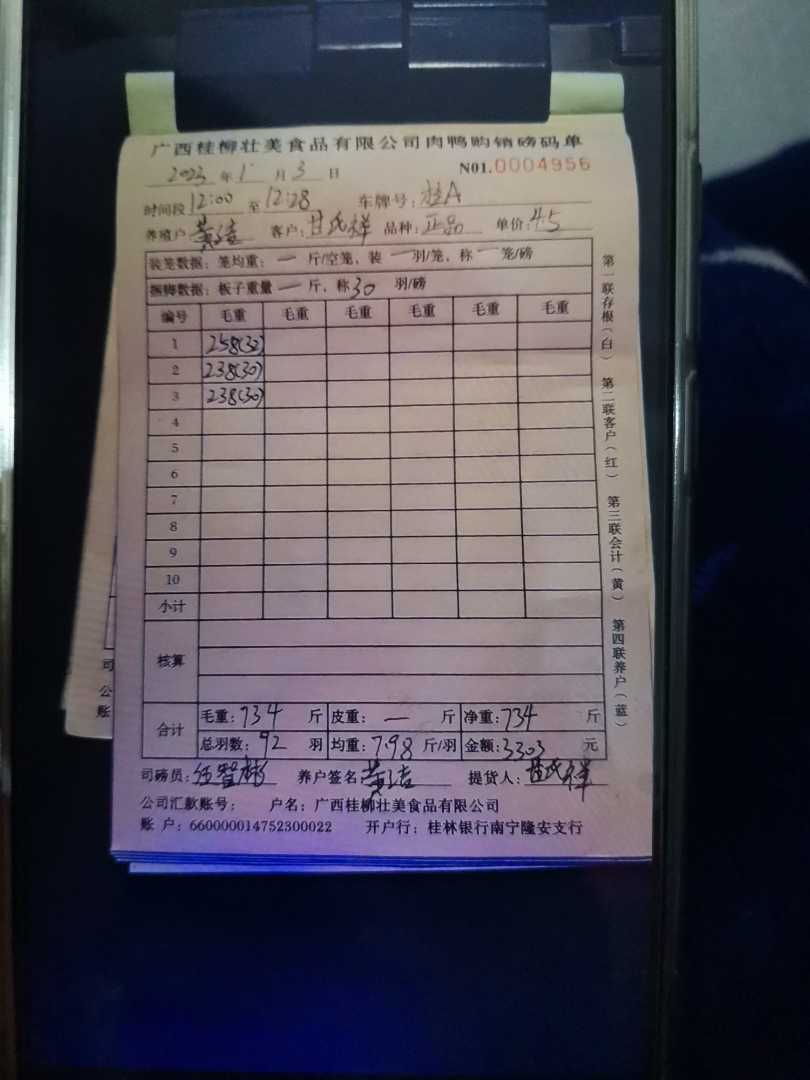 广西桂柳壮美食品有限公司肉鸭购销磅码单
2023 年 1 月 3 日 N01.0004956
时间段 12:00 至 12:28 车牌号: 桂A
养殖户 黄洁 客户: 甘氏祥 品种: 正品 单价: 4.5
装笼数据: 笼均重: 一 斤/空笼, 装 一 羽/笼, 称 一 笼/磅
捆脚数据: 板子重量 一 斤, 称 30 羽/磅
编号 毛重 毛重 毛重 毛重 毛重 毛重
1 258(32)
2 238(30)
3 238(30)
4
5
6
7
8
9
10
小计
核算
合计 毛重: 734 斤 皮重: 一 斤 净重: 734 斤
总羽数: 92 羽 均重: 7.98 斤/羽 金额: 3303 元
司磅员: 养户签名 黄洁 提货人: 甘氏祥
公司汇款账号: 户名: 广西桂柳壮美食品有限公司
账 户: 660000014752300022 开户行: 桂林银行南宁隆安支行
第一联存根(白) 第二联客户(红) 第三联会计(黄) 第四联养户(蓝)
司
公
账